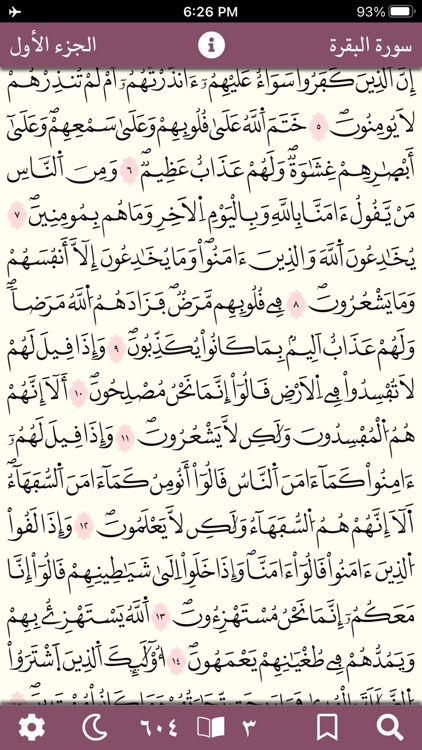 6:26 PM
93%
سورة البقرة
الجزء الأول
إِنَّ اَ۬لذِينَ كَفَرُواْ سَوَآءٌ عَلَيْهِمُۥٓ ءَآنذَرْتَهُمُۥٓ أَمْ لَمْ تُنذِرْهُمْ
لَا يُومِنُونَۖ ٥ خَتَمَ اَ۬للَّهُ عَلَىٰ قُلُوبِهِمْ وَعَلَىٰ سَمْعِهِمْۖ وَعَلَىٰٓ
أَبْصٰ۪رِهِمْ غِشَٰوَةٞۖ وَلَهُمْ عَذَابٌ عَظِيمٞۖ ٦ وَمِنَ اَ۬لنَّاسِ
مَنْ يَّقُولُ ءَامَنَّا بِاللَّهِ وَبِالْيَوْمِ اِ۬لَاخِرِ وَمَا هُم بِمُومِنِينَۖ
٧
يُخَٰدِعُونَ اَ۬للَّهَ وَالذِينَ ءَامَنُواْۖ وَمَا يُخَٰدِعُونَ إِلَّآ أَنفُسَهُمْ
وَمَا يَشْعُرُونَۖ ٨ فِے قُلُوبِهِم مَّرَضٞ فَزَادَهُمُ اُ۬للَّهُ مَرَضاٗۖ
وَلَهُمْ عَذَابٌ اَلِيمُۢ بِمَا كَانُواْ يُكَذِّبُونَۖ ٩ وَإِذَا قِيلَ لَهُمْ
لَا تُفْسِدُواْ فِے اِ۬لَارْضِ قَالُوٓاْ إِنَّمَا نَحْنُ مُصْلِحُونَۖ ١٠ أَلَآ إِنَّهُمْ
هُمُ اُ۬لْمُفْسِدُونَ وَلَٰكِن لَّا يَشْعُرُونَۖ ١١ وَإِذَا قِيلَ لَهُمُۥٓ
ءَامِنُواْ كَمَآ ءَامَنَ اَ۬لنَّاسُ قَالُوٓاْ أَنُومِنُ كَمَآ ءَامَنَ اَ۬لسُّفَهَآءُۖ
أَلَآ إِنَّهُمْ هُمُ اُ۬لسُّفَهَآءُ وَلَٰكِن لَّا يَعْلَمُونَۖ ١٢ وَإِذَا لَقُواْ
اُ۬لذِينَ ءَامَنُواْ قَالُوٓاْ ءَامَنَّاۖ وَإِذَا خَلَوِاْ اِلَىٰ شَيَٰطِينِهِمْ قَالُوٓاْ إِنَّا
مَعَكُمُۥٓ إِنَّمَا نَحْنُ مُسْتَهْزِءُونَۖ ١٣ اَ۬للَّهُ يَسْتَهْزِۓُ بِهِمْ
وَيَمُدُّهُمْ فِے طُغْيَٰنِهِمْ يَعْمَهُونَۖ ١٤ أُوْلَٰٓئِكَ اَ۬لذِينَ اَ۪شْتَرَوُاْ
٣
٦٠٤